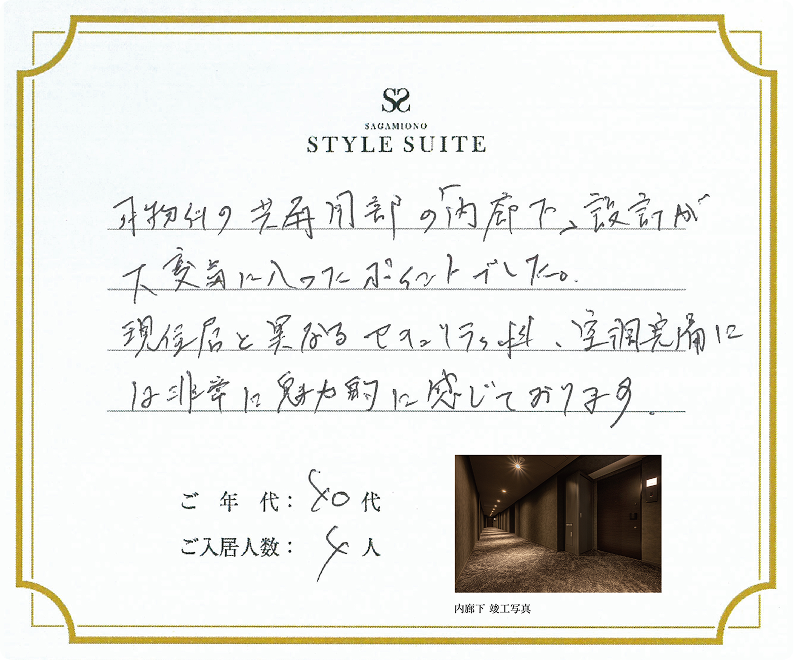 SS
SAGAMIONO
STYLE SUITE
本物件の共用部の「内廊下」設計が
大変気に入ったポイントでした。
現住居と異なるセキュリティ性、空調完備に
は非常に魅力的に感じております。
ご年代：40代
ご入居人数：4人
内廊下 竣工写真